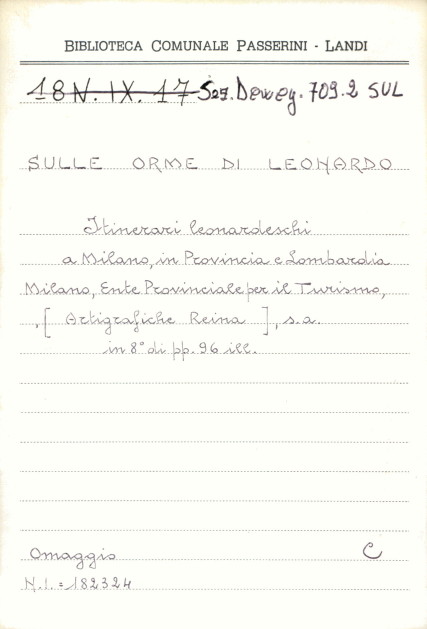 BIBLIOTECA COMUNALE PASSERINI - LANDI
18 N. IX. 17 Sez. Dewey. 709.2 SUL
SULLE ORME DI LEONARDO
Itinerari leonardeschi
a Milano, in Provincia e Lombardia
Milano, Ente Provinciale per il Turismo,
,[ Artigrafiche Reina ], s.a.
in 8° di pp. 96 ill.
Omaggio C
N.I. = 182324